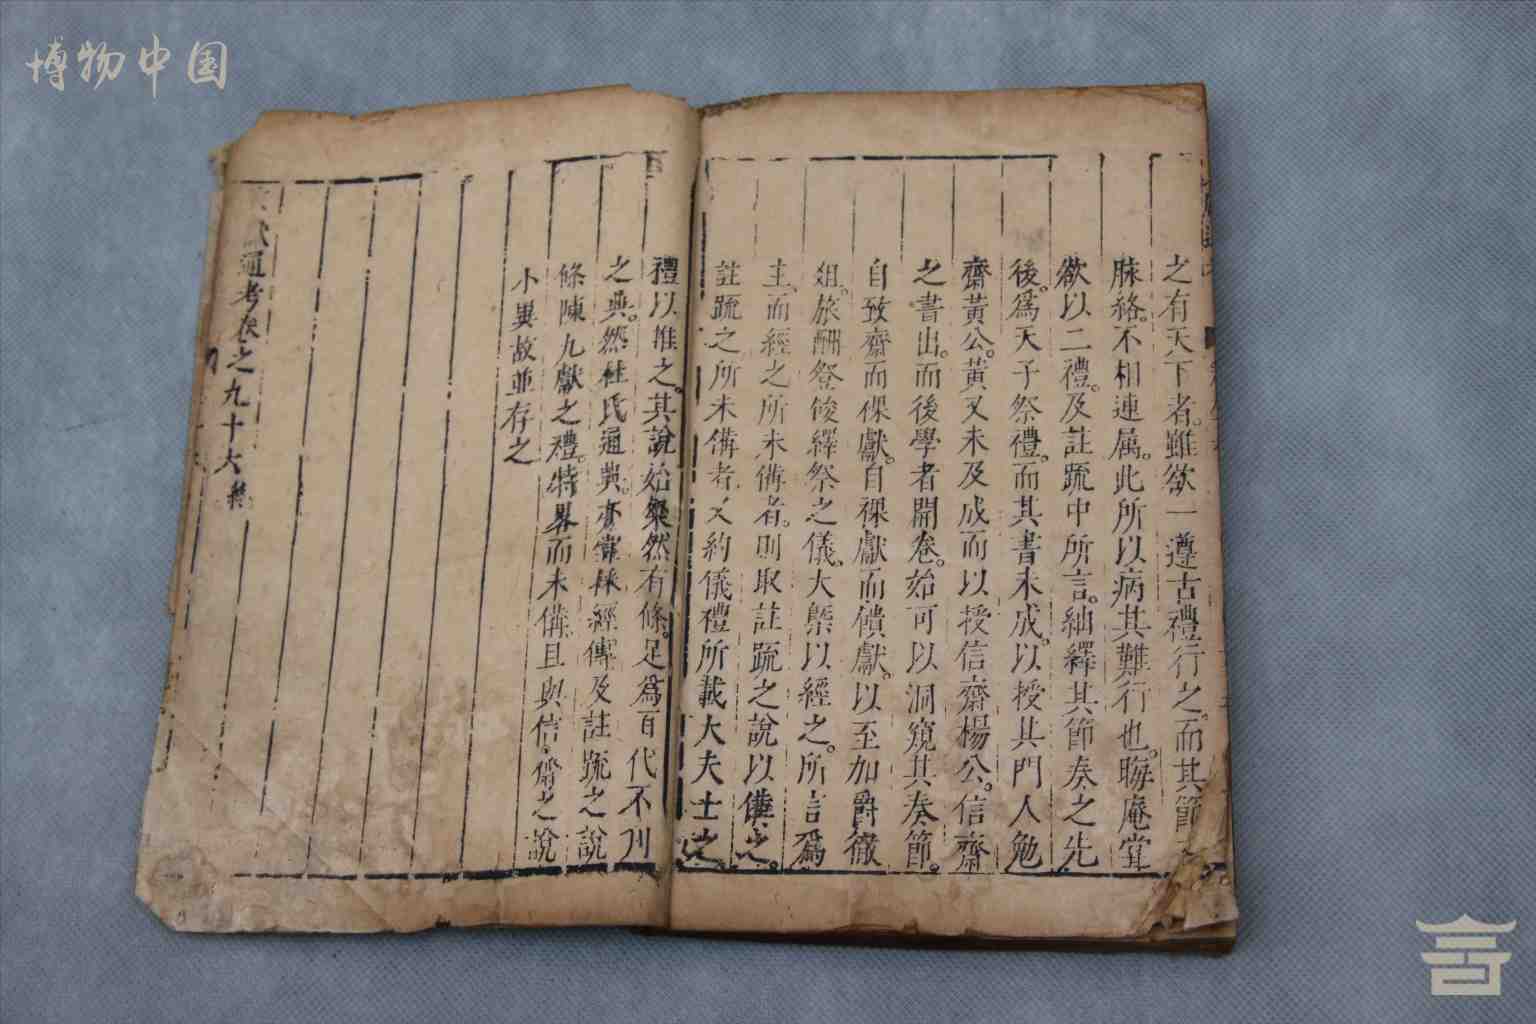 博物中国
之有天下者。雖欲一遵古禮行之。而其節
脉絡。不相連属。此所以病其難行也。晦庵嘗
欲以二禮。及註疏中所言。紬繹其節奏之先
後。爲天子祭禮。而其書未成。以授其門人勉
齋黃公。黃又未及成而以授信齋楊公。信齋
之書出。而後學者開卷。始可以洞窺其奏節。
自致齋而祼獻。自祼獻而饋獻。以至加爵徹
俎。旅酬登餕繹祭之儀。大槩以經之。所言爲
主。而經之所未備者。則取註疏之說以備之。
註疏之所未備者又約儀禮所載大夫士之
禮以推之。其說始粲然有條。足爲百代不刊
之典。然杜氏通典。亦嘗採經傳及註疏之說
條陳九獻之禮。特畧而未備。且與信齋之說
小異故並存之
通考卷之九十六終